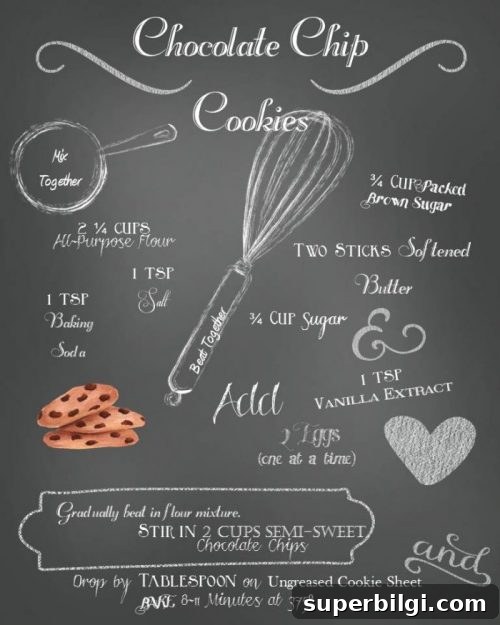 Chocolate Chip
Cookies
Mix
Together
2 ¼ CUPS
All-Purpose Flour
1 TSP
Salt
1 TSP
Baking
Soda
Beat Together
¾ CUP Packed
Brown Sugar
TWO STICKS Softened
Butter
¾ CUP Sugar
&
1 TSP
VANILLA EXTRACT
Add
2 Eggs
(one at a time)
Gradually beat in flour mixture.
STIR IN 2 CUPS SEMI-SWEET
Chocolate Chips
and
Drop by TABLESPOON on Ungreased Cookie Sheet
BAKE 8-11 Minutes at
superbilgi.com